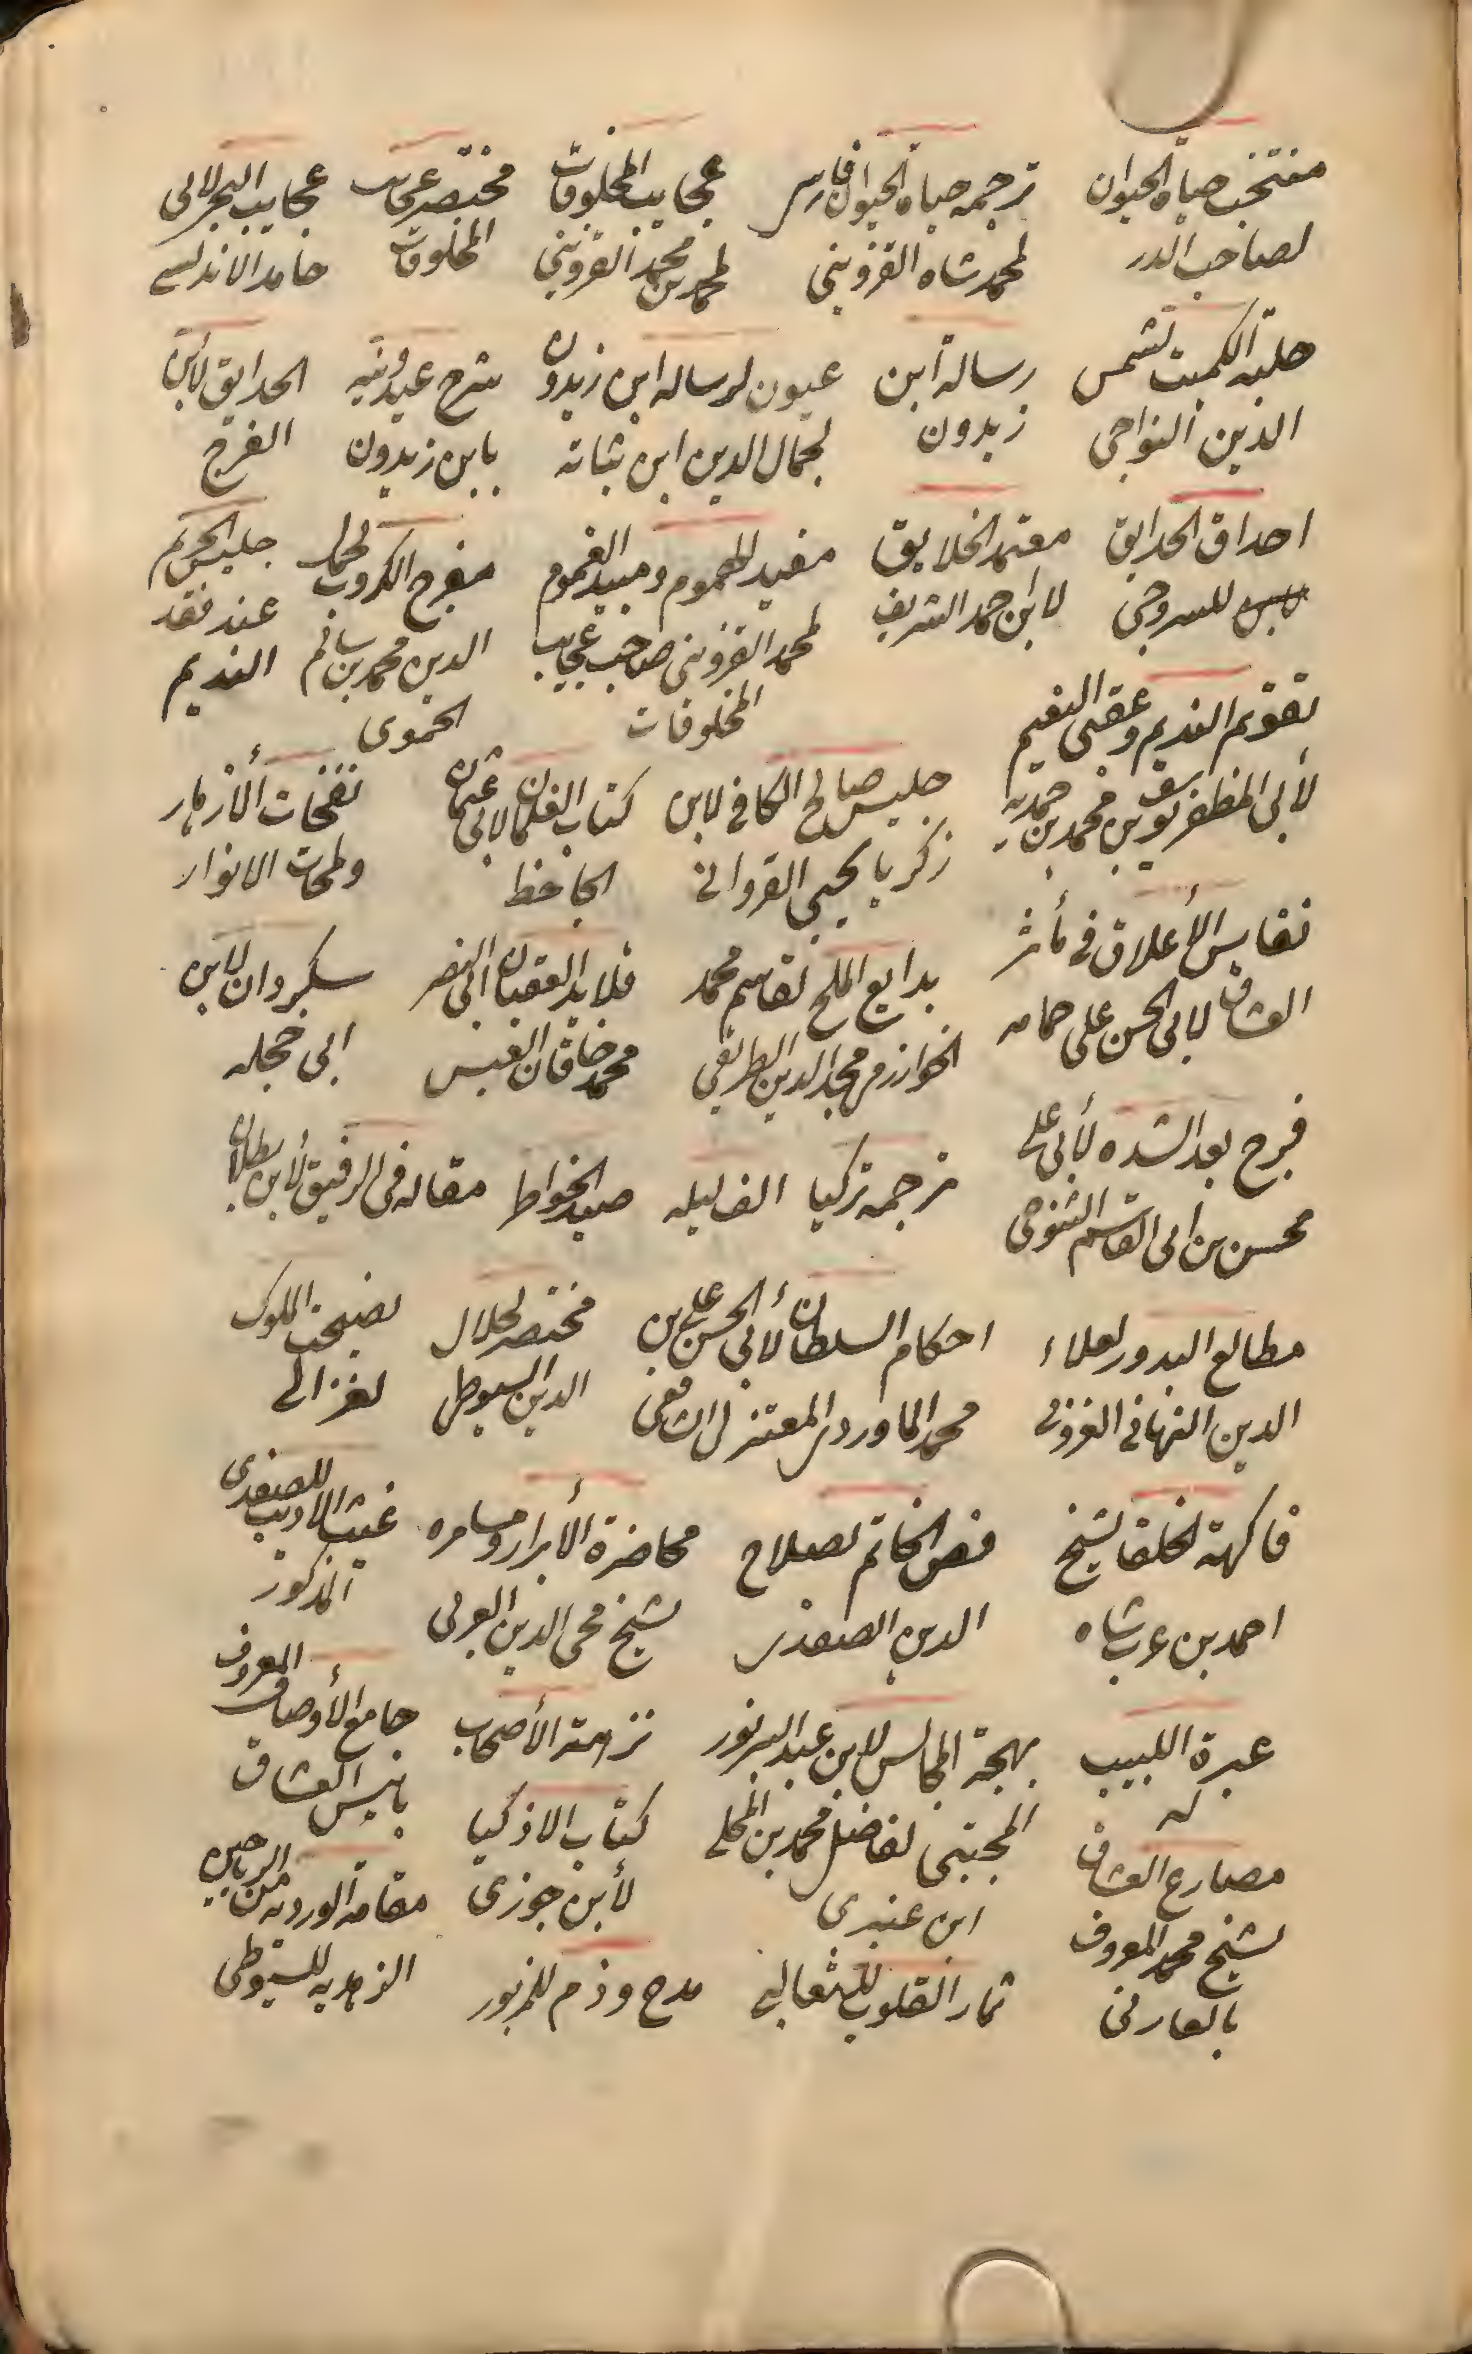 منتخب حياة الحيوان
لصاحب الدرر
ترجمه حياة الحيوان فارسى
لمحمد شاه القزوينى
عجايب المخلوقات
لمحمد بن محمد القزوينى
مختصر عجايب
المخلوقات
عجايب البحر لابى
حامد الاندلسى
حلبة الكميت لشمس
الدين النواجى
رسالة ابن
زيدون
عيون لرساله ابن زيدون
لجمال الدين ابن نباته
شرح عبدونيه
بابن زيدون
الحدايق لابن
الفرج
احداق الحدايق
للسروجى
معتمد الخلايق
لابن احمد الشريف
مفيد للهموم ومبيد الغموم
لمحمد القزوينى صاحب عجايب
المخلوقات
مفرج الكروب لجمال
الدين محمد بن سالم
الحموى
جليس الحريم
عند فقد
النديم
تقويم النديم وعقبى النعيم
لأبى المظفر يوسف بن محمد بن حمديه
جليس صالح الكافى لابن
زكريا يحيى القروانى
كتاب الغلمان لابى عثمان
الجاحظ
نفحات الأزهار
ولمحات الانوار
نفايس الأعلاق فى مأثر
العشاق لابى الحسن على حمامه
بدايع الملح لقاسم محمد
الخوارزمى مجد الدين الطرايفى
قلايد العقيان ابى النصر
محمد خاقان القيس
سكردان لابن
ابى حجله
فرج بعد الشده لأبى على
محسن بن ابى القاسم التنوخى
ترجمه تركيا
الف ليله
صيد الخواطر
مقاله فى الرقيق لأبن بطلان
مطالع البدور لعلاء
الدين البهائى الغزولى
احكام السلطان لأبى الحسن على بن
محمد الماوردى المعتزلى الشافعى
مختصر لجلال
الدين السيوطى
نصيحت الملوك
لغزالى
فاكهة لخلفا لشيخ
احمد بن عربشاه
فض الختام لصلاح
الدين الصفدى
محاضرة الأبرار ومسامره
لشيخ محى الدين العربى
غيث الاديب للصفدى
المذكور
عبرة اللبيب
له
بهجة المجالس لابن عبد البر نور
نزهة الأصحاب
جامع الأوصاف المعروف
بانيس العشاق
مصارع العشاق
لشيخ محمد المعروف
بالعارفى
المجتبى لفاضل محمد بن المحلى
ابن عنبرى
كتاب الاذكيا
لأبن جوزى
مقامة الورديه من الرياحين
الزهريه للسيوطى
ثمار القلوب للثعالبى
مدح وذم للمزبور